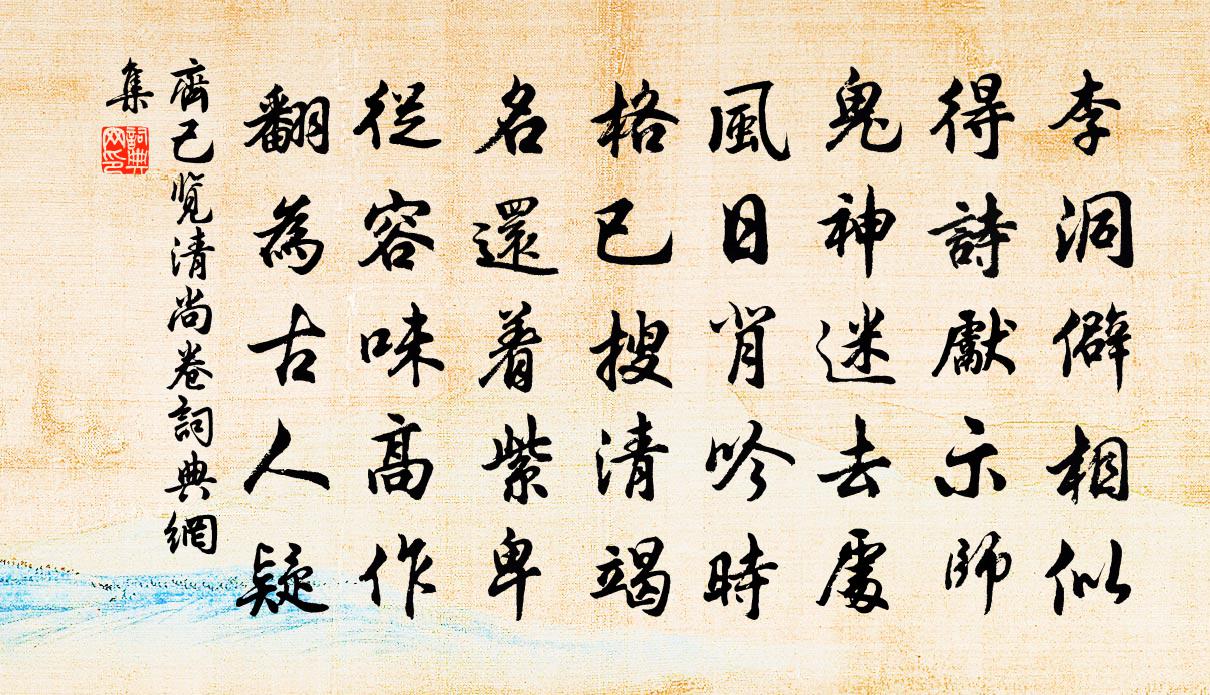 李洞僻相似
得詩獻示師
鬼神迷去處
風日背吟時
格已搜清竭
名還着紫卑
從容味高作
翻為古人疑
齊己覽清尚卷詞典網
集
詞典
网印